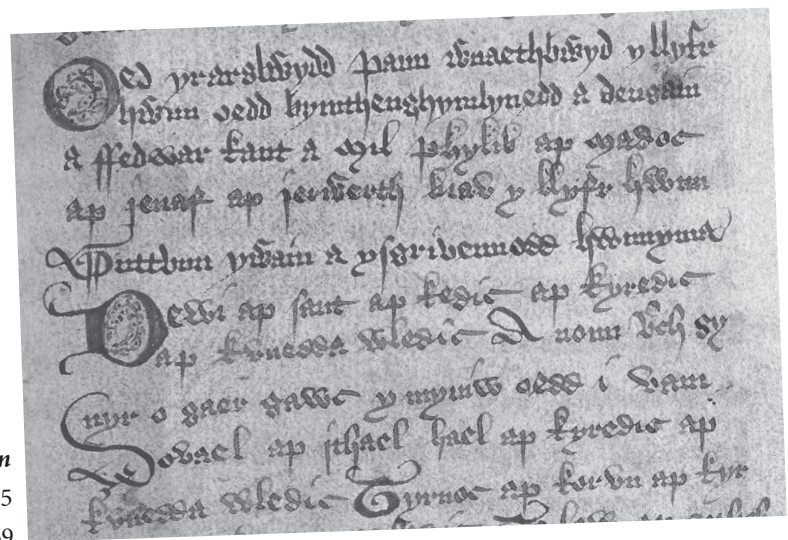 Oed yr arglwydd pann wnaethbwyd y llyfr
hwnn oedd bymthenghymlynedd a deugain
a ffedwar kant a mil phylib ap madoc
ap jenaf ap jerwerth biav y llyfr hwnn
Guttvun ywain a ysgrivennodd hwnnyma
Dewi ap sant ap kedic ap kyredic
ap kvnedda wledic A nonn verch sy
nyr o gaer gawc ymyniw oedd i vam
Sovael ap ithael hael ap kyredic ap
kvnedda wledic Tyrnoc ap korvn ap kyr
n
5
9